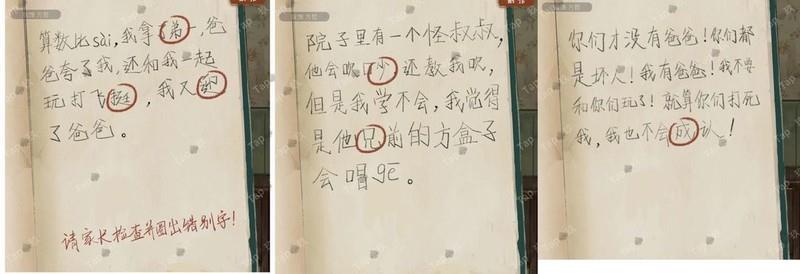 算数比sài,我拿了弟一,爸
爸夸了我,还和我一起
玩打飞挺,我又
了爸爸。
请家长检查并圈出错别字!
院子里有一个怪叔叔,
他会吹口吵还教我吹,
但是我学不会,我觉得
是他兄前的方盒子
会唱gē。
你们才没有爸爸!你们都
是坏人!我有爸爸!我不要
和你们玩了!就算你们打死
我,我也不会成认!